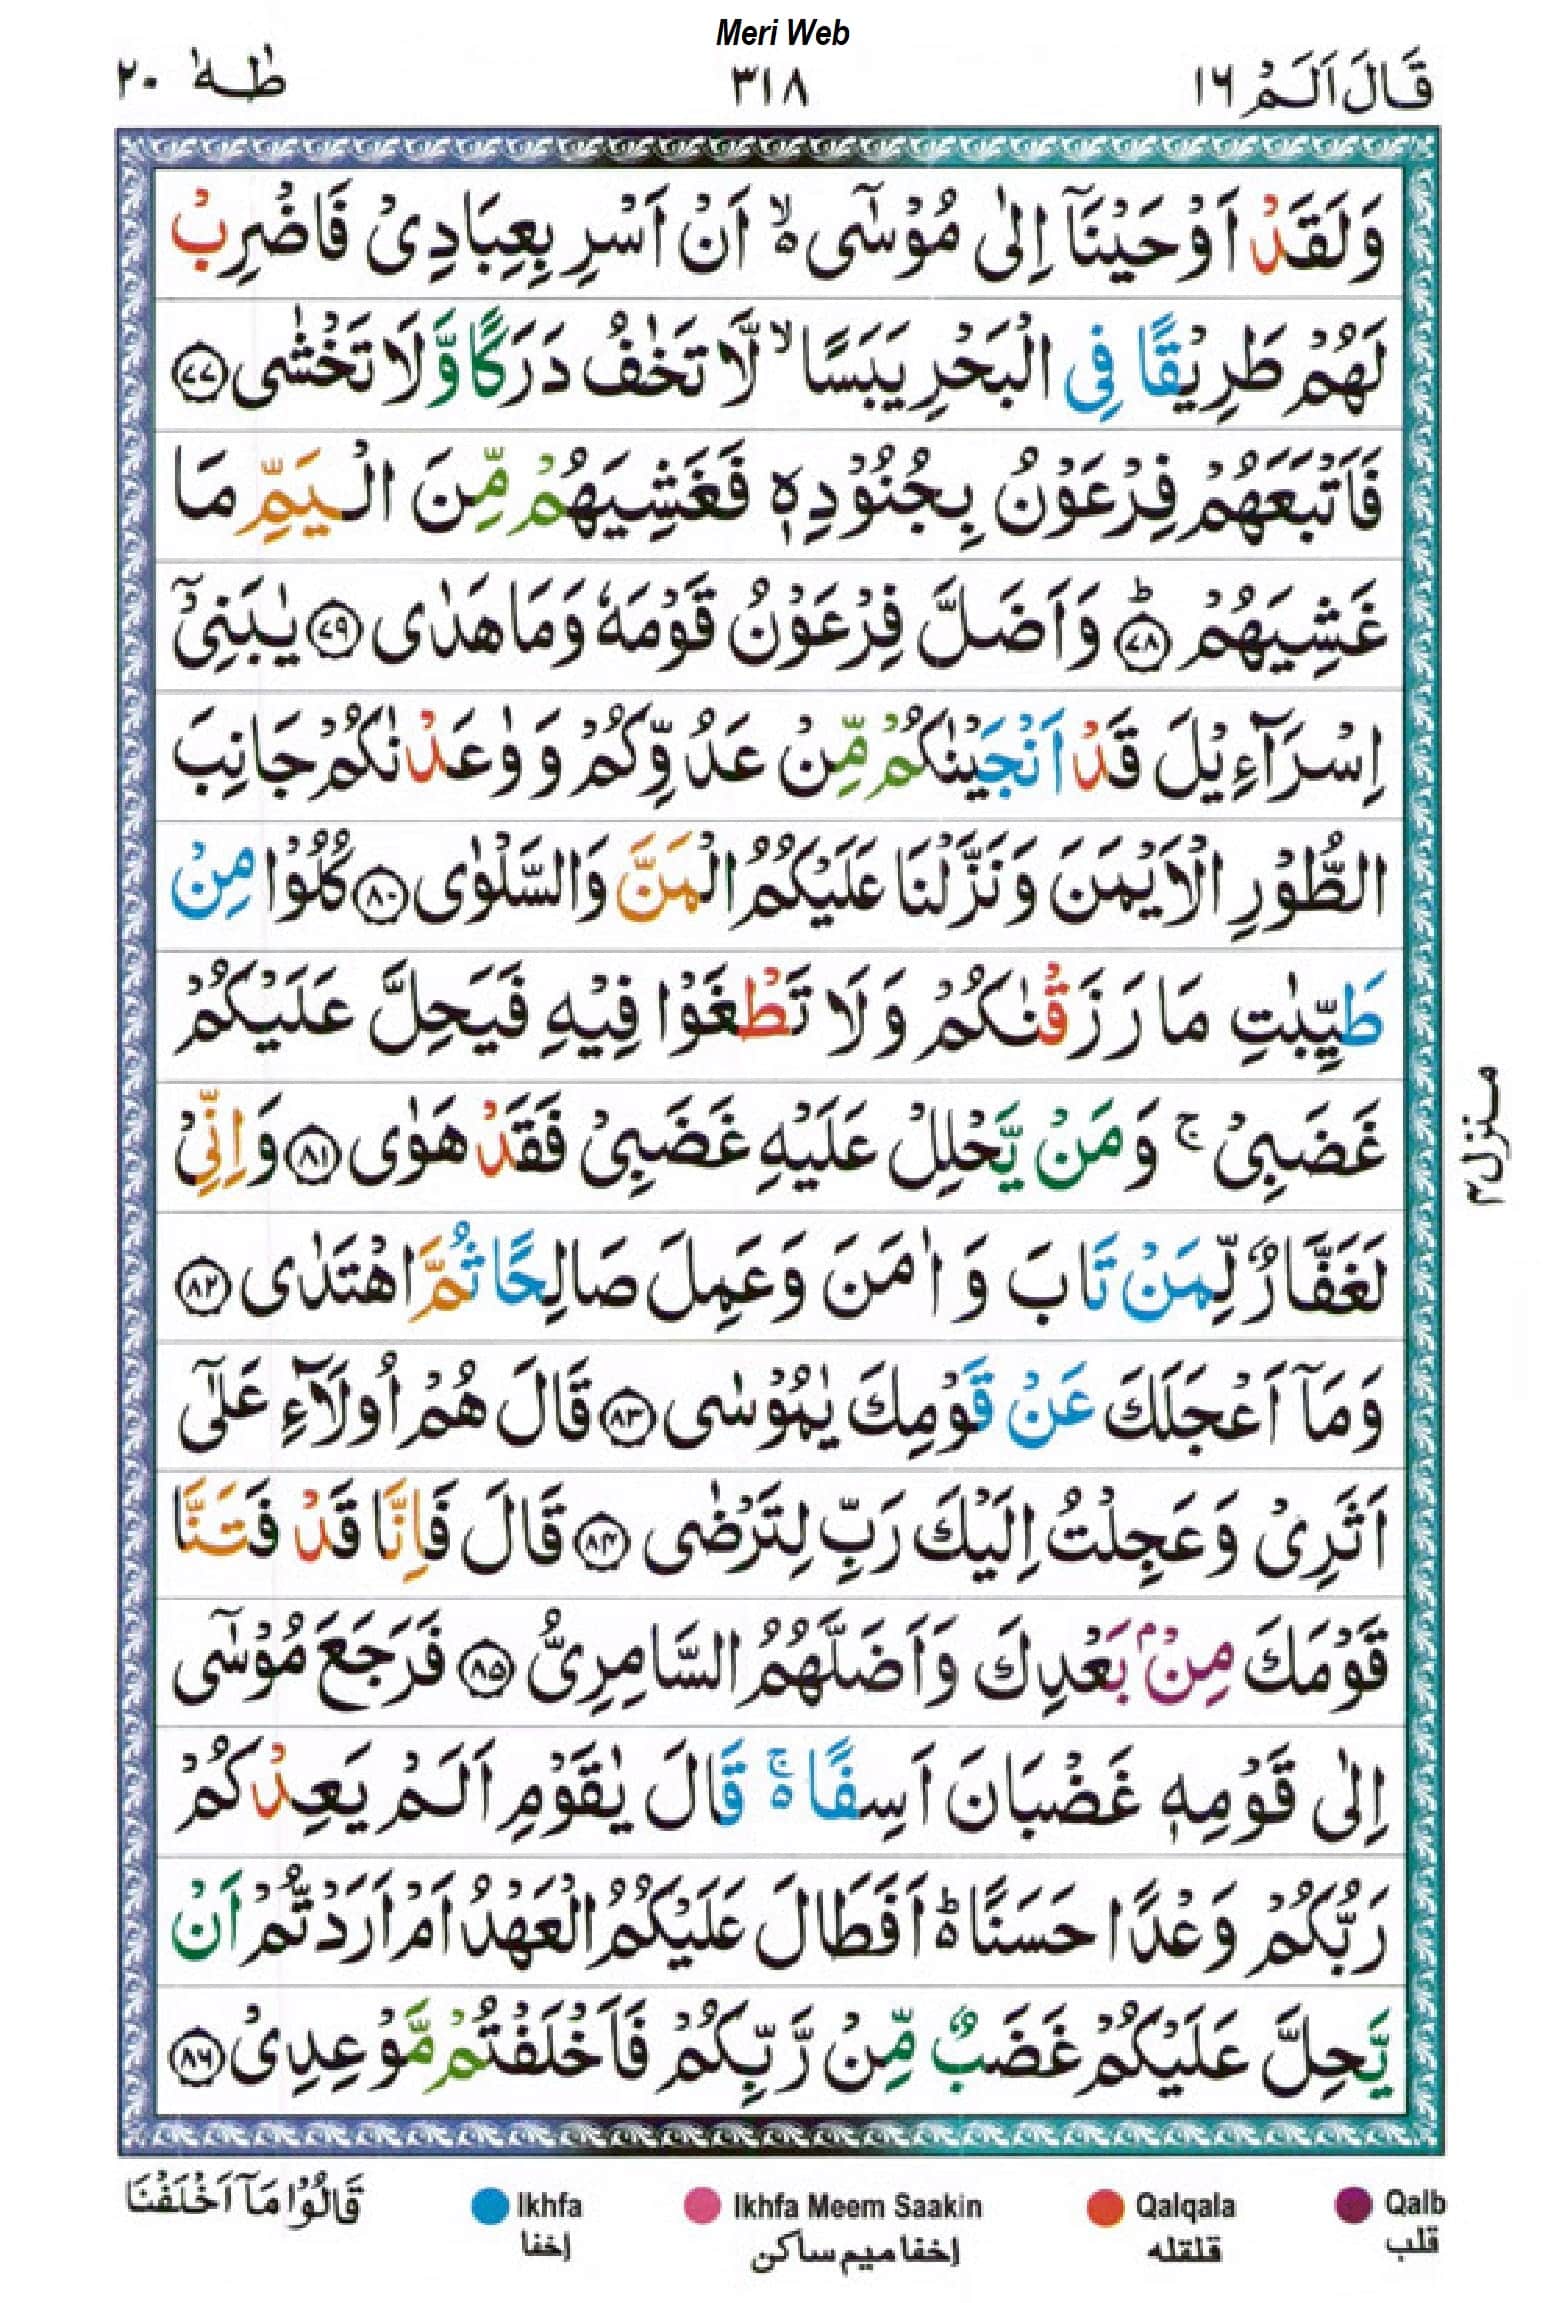 Meri Web
قَالَ اَلَمْ ١٦
٣١٨
طٰهٰ ٢٠
وَلَقَدْ اَوْحَيْنَآ اِلٰى مُوْسٰٓى ەۙ اَنْ اَسْرِ بِعِبَادِىْ فَاضْرِبْ
لَهُمْ طَرِيْقًا فِى الْبَحْرِ يَبَسًا ۙ لَّا تَخٰفُ دَرَكًا وَّلَا تَخْشٰى ﴿٧٧﴾
فَاَتْبَعَهُمْ فِرْعَوْنُ بِجُنُوْدِهٖ فَغَشِيَهُمْ مِّنَ الْيَمِّ مَا
غَشِيَهُمْ ؕ﴿٧٨﴾ وَاَضَلَّ فِرْعَوْنُ قَوْمَهٗ وَمَا هَدٰى ﴿٧٩﴾ يٰبَنِىْٓ
اِسْرَآءِيْلَ قَدْ اَنْجَيْنٰكُمْ مِّنْ عَدُوِّكُمْ وَ وٰعَدْنٰكُمْ جَانِبَ
الطُّوْرِ الْاَيْمَنَ وَنَزَّلْنَا عَلَيْكُمُ الْمَنَّ وَالسَّلْوٰى ﴿٨٠﴾ كُلُوْا مِنْ
طَيِّبٰتِ مَا رَزَقْنٰكُمْ وَلَا تَطْغَوْا فِيْهِ فَيَحِلَّ عَلَيْكُمْ
غَضَبِىْ ۚ وَمَنْ يَّحْلِلْ عَلَيْهِ غَضَبِىْ فَقَدْ هَوٰى ﴿٨١﴾ وَاِنِّىْ
لَغَفَّارٌ لِّمَنْ تَابَ وَاٰمَنَ وَعَمِلَ صَالِحًا ثُمَّ اهْتَدٰى ﴿٨٢﴾
وَمَآ اَعْجَلَكَ عَنْ قَوْمِكَ يٰمُوْسٰى ﴿٨٣﴾ قَالَ هُمْ اُولَآءِ عَلٰٓى
اَثَرِىْ وَعَجِلْتُ اِلَيْكَ رَبِّ لِتَرْضٰى ﴿٨٤﴾ قَالَ فَاِنَّا قَدْ فَتَنَّا
قَوْمَكَ مِنْۢ بَعْدِكَ وَاَضَلَّهُمُ السَّامِرِىُّ ﴿٨٥﴾ فَرَجَعَ مُوْسٰٓى
اِلٰى قَوْمِهٖ غَضْبَانَ اَسِفًا ەۚ قَالَ يٰقَوْمِ اَلَمْ يَعِدْكُمْ
رَبُّكُمْ وَعْدًا حَسَنًا ەؕ اَفَطَالَ عَلَيْكُمُ الْعَهْدُ اَمْ اَرَدْتُّمْ اَنْ
يَّحِلَّ عَلَيْكُمْ غَضَبٌ مِّنْ رَّبِّكُمْ فَاَخْلَفْتُمْ مَّوْعِدِىْ ﴿٨٦﴾
منزل٤
قَالُوْا مَآ اَخْلَفْنَا
Ikhfa
اخفا
Ikhfa Meem Saakin
اخفا ميم ساكن
Qalqala
قلقله
Qalb
قلب